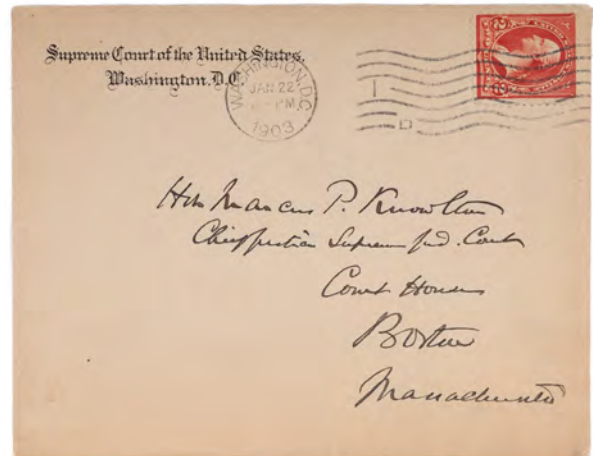 Supreme Court of the United States.
Washington, D.C.
WASHINGTON, D.C.
JAN 22
PM
1903
Hon Marcus P. Knowlton
Chief Justice Supreme Jud. Court
Court House
Boston
Massachusetts